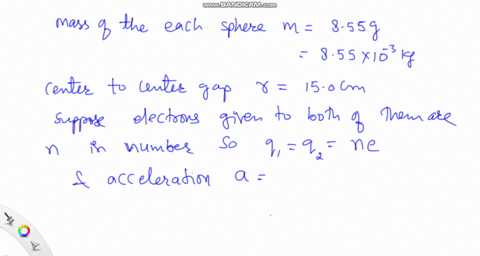 WWW.BANDICAM.COM
mass of the each sphere m = 8.55g
= 8.55 ×10⁻³ kg
center to center gap r = 15.0 cm
suppose electrons given to both of them are
n in number so q₁ = q₂ = ne
& acceleration a =